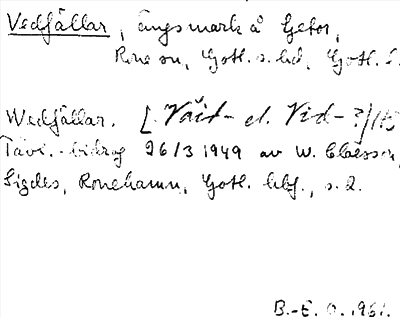 Vedfjällar, ängsmark å Getor,
Rone sn, Gotl. s. hd, Gotl. l.
Wedfjällar. [Väit- el. Vid-?]
Täv.-bidrag 26/3 1949 av W. Claesson,
Sigdes, Ronehamn, Gotl. hbf., s. 2.
B.-E. O. 1961.